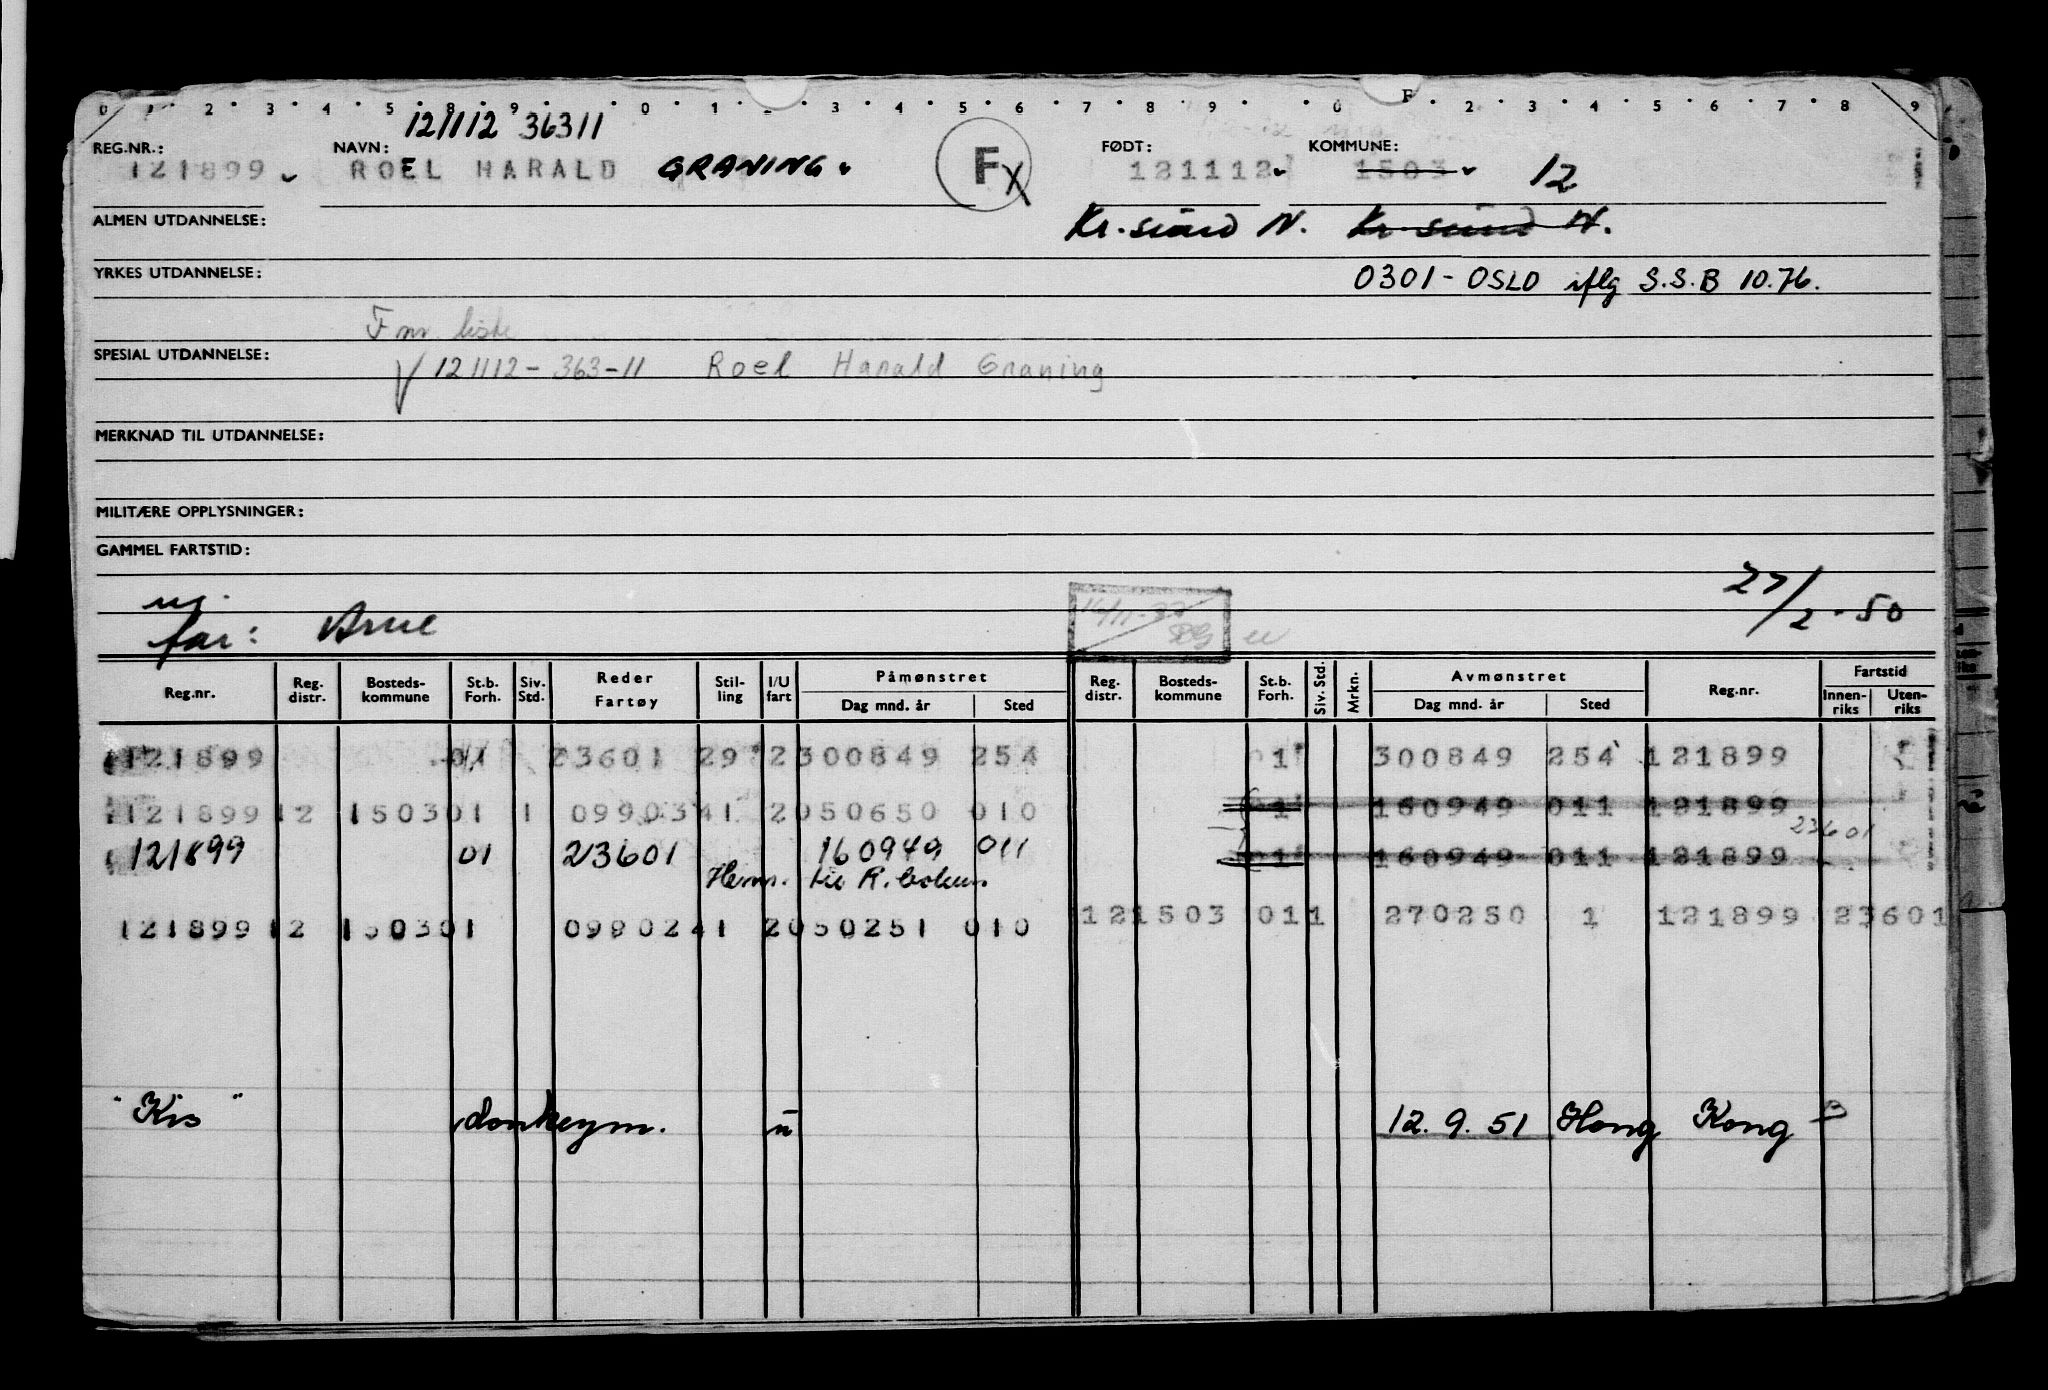 0 1 2 3 4 5 8 9 0 1 2 3 4 5 6 7 8 9 0 F 2 3 4 5 6 7 8 9
121112 36311
REG.NR.: NAVN: FØDT: KOMMUNE:
121899 ROEL HARALD GRANING. F X 121112 1503 12
ALMEN UTDANNELSE: Kr.sund N. Kr.sund N.
YRKES UTDANNELSE: 0301 - OSLO iflg S.S.B 10.76.
F nr. liste
SPESIAL UTDANNELSE: 121112 - 363 - 11 Roel Harald Graning
MERKNAD TIL UTDANNELSE:
MILITÆRE OPPLYSNINGER:
GAMMEL FARTSTID:
27/2 - 50
far: Arne
Reg.nr. Reg. distr. Bosteds-kommune St.b. Forh. Siv. Std. Reder Fartøy Stil-ling I/U fart Påmønstret Dag mnd. år Sted Reg. distr. Bosteds-kommune St.b. Forh. Siv. Std. Mrkn. Avmønstret Dag mnd. år Sted Reg.nr. Fartstid Innen-riks Uten-riks
121899 01 23601 29 2 300849 254 1 300849 254 121899
121899 12 1503 01 1 09903 41 2 050650 010 1 160949 011 121899
23601
121899 01 23601 160949 011 01 160949 011 121899
Hem. til R. boken.
121899 12 1503 01 09902 41 2 050251 010 12 1503 01 1 270250 1 121899 23601
"Kis" donkeym. u 12.9.51 Hong Kong B